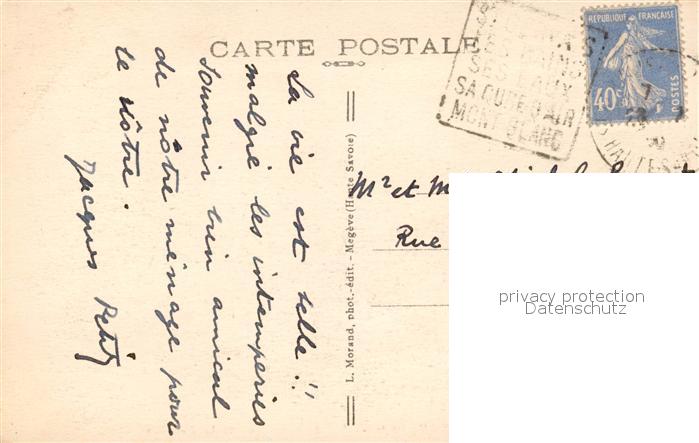 CARTE POSTALE
SES BAINS
SES EAUX
SA CURE D'AIR
MONT BLANC
REPUBLIQUE FRANÇAISE
40c
POSTES
La vie est belle !!
malgré les intemperies
Souvenir bien amical
de nôtre ménage pour
le vôtre.
Jacques Petit
L. Morand, phot.-édit. - Megève (Haute Savoie)
Mr et M
Rue
privacy protection
Datenschutz